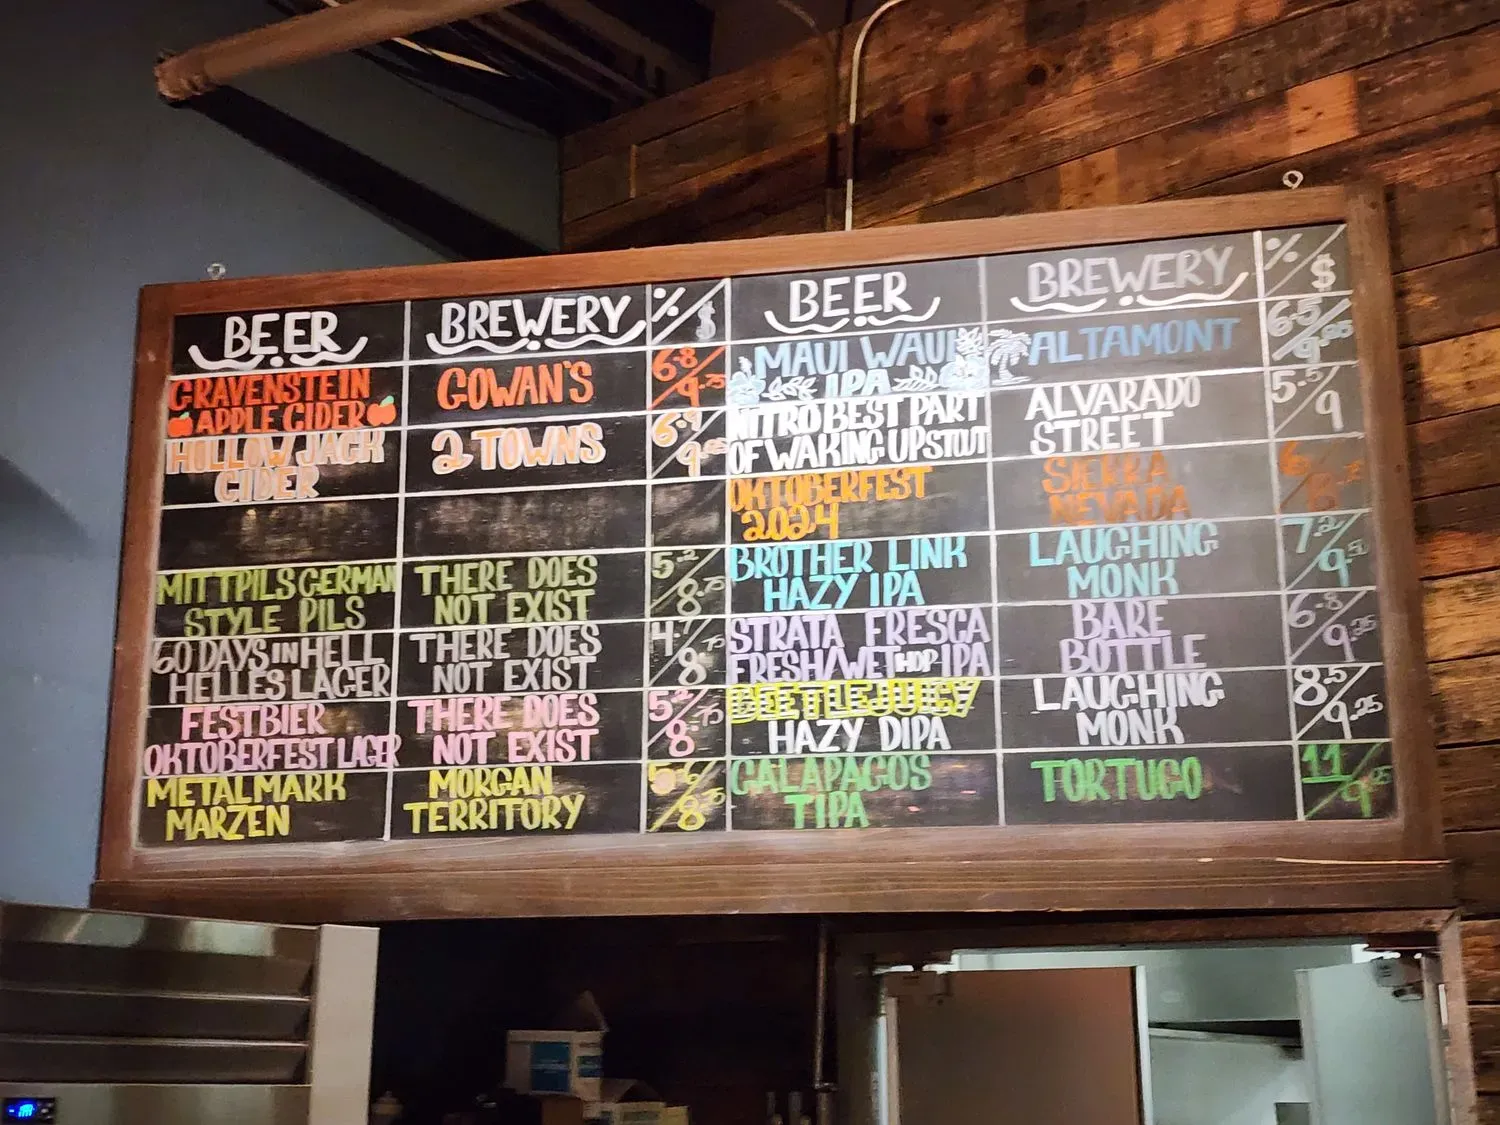 BEER BREWERY % $
GRAVENSTEIN
APPLE CIDER
GOWAN'S
6.8 9.75
HOLLOW JACK
CIDER
2 TOWNS
6.9
MITTPILS GERMAN
STYLE PILS
THERE DOES
NOT EXIST
5.2 8.75
60 DAYS IN HELL
HELLES LAGER
THERE DOES
NOT EXIST
4.7 8.75
FESTBIER
OKTOBERFEST LAGER
THERE DOES
NOT EXIST
5.2 8.75
METALMARK
MARZEN
MORGAN
TERRITORY
5.6 8.75
BEER BREWERY % $
MAUI WAUI
IPA
ALTAMONT
6.5
NITRO BEST PART
OF WAKING UP STOUT
ALVARADO
STREET
5.5 9
OKTOBERFEST
2024
SIERRA
NEVADA
6
BROTHER LINK
HAZY IPA
LAUGHING
MONK
7.2 9.50
STRATA FRESCA
FRESH/WET HOP IPA
BARE
BOTTLE
6.8 9.25
BEETLEJUICY
HAZY DIPA
LAUGHING
MONK
8.5 9.25
GALAPAGOS
TIPA
TORTUGO
11 9.25